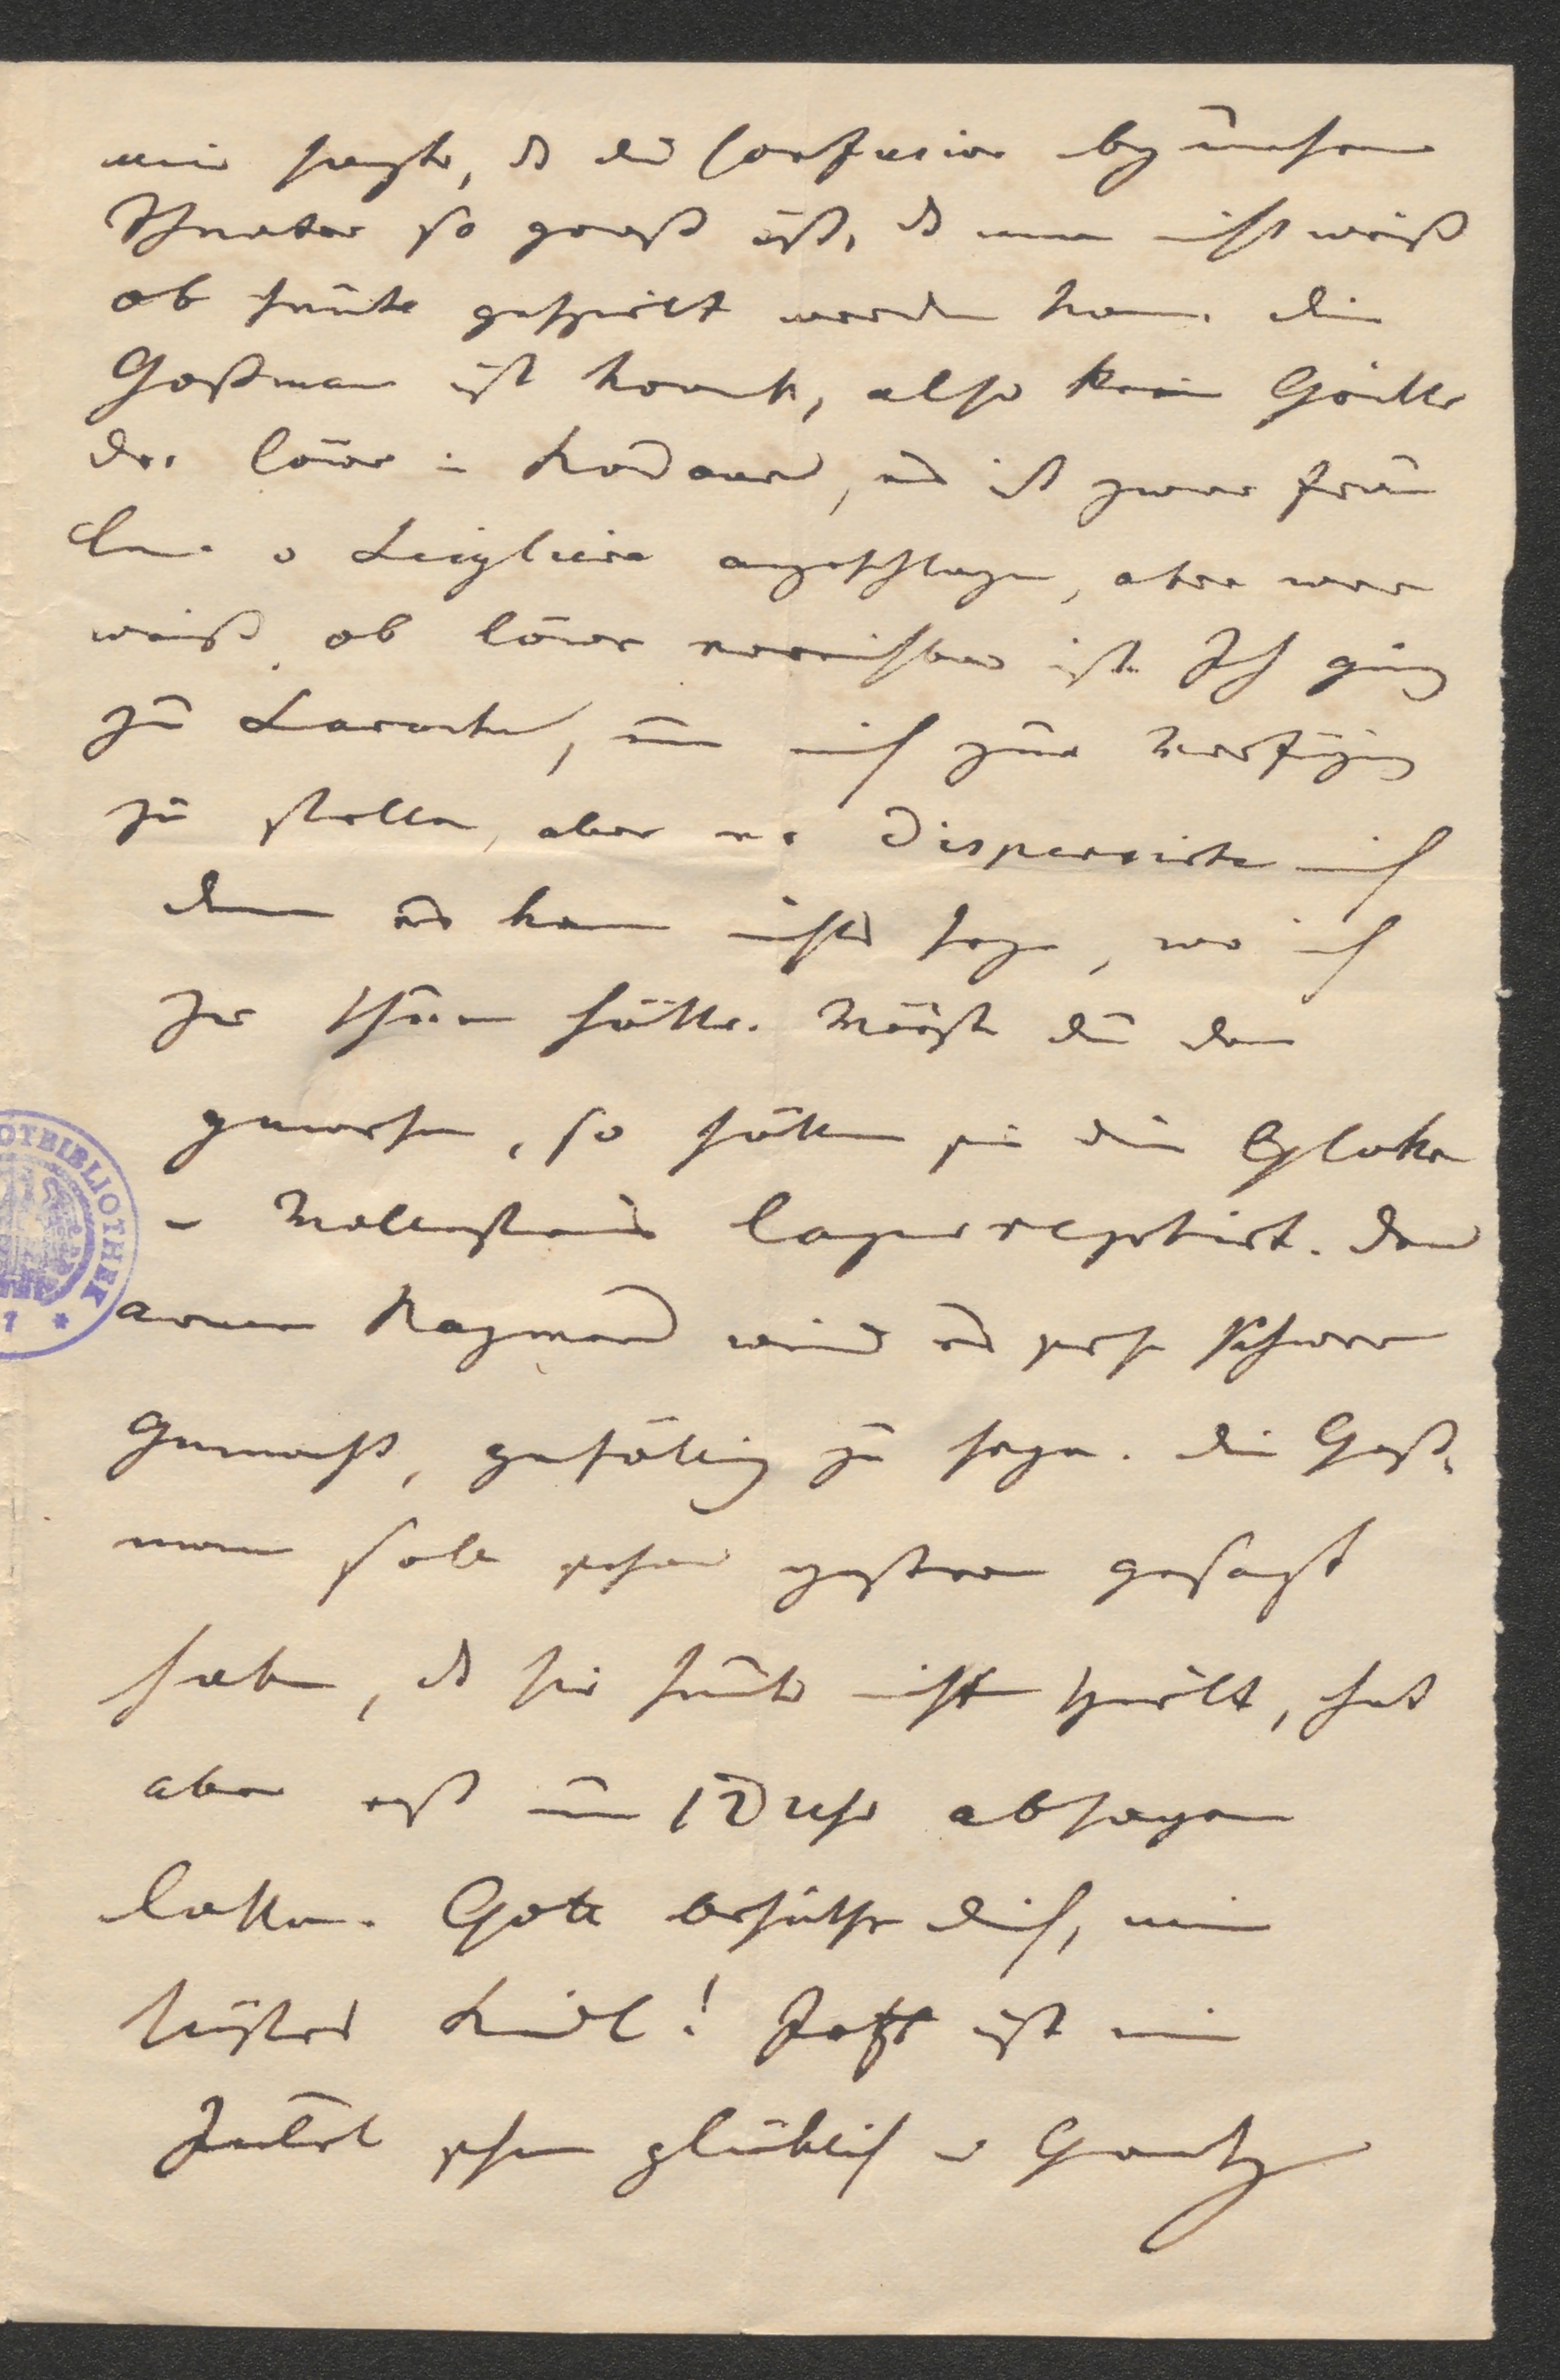 mir sagte, dß die Confusion bey unserm
Theater so groß ist, dß man nicht weiß
ob heute gespielt werden kann. Die
Goßmann ist krank, also kein Grille
der Löwe in, es ist zwar
v Seigliere angeschlagen, aber wer
weiß, ob Löwe ist. Ich ging
zu Laroche, um mich zur Verfügung
zu stellen, aber er dispensirte mich
denn es kann nichts seyn, wo ich
zu thun hätte. Wärst du da
gewesen, so hätten sie die Gloke
u Wallensteins Lager. Dem
armen Raymond wird es sehr schwer
gemacht, gefällig zu seyn. Die Goß-
mann soll schon gestern gesagt
haben, dß sie heute nicht spielt, hat
aber erst um 12 Uhr absagen
lassen. Gott behüthe dich, mein
Kind! Jetzt ist mein
schon glüklich in Graz
OTBIBLIOTHEK